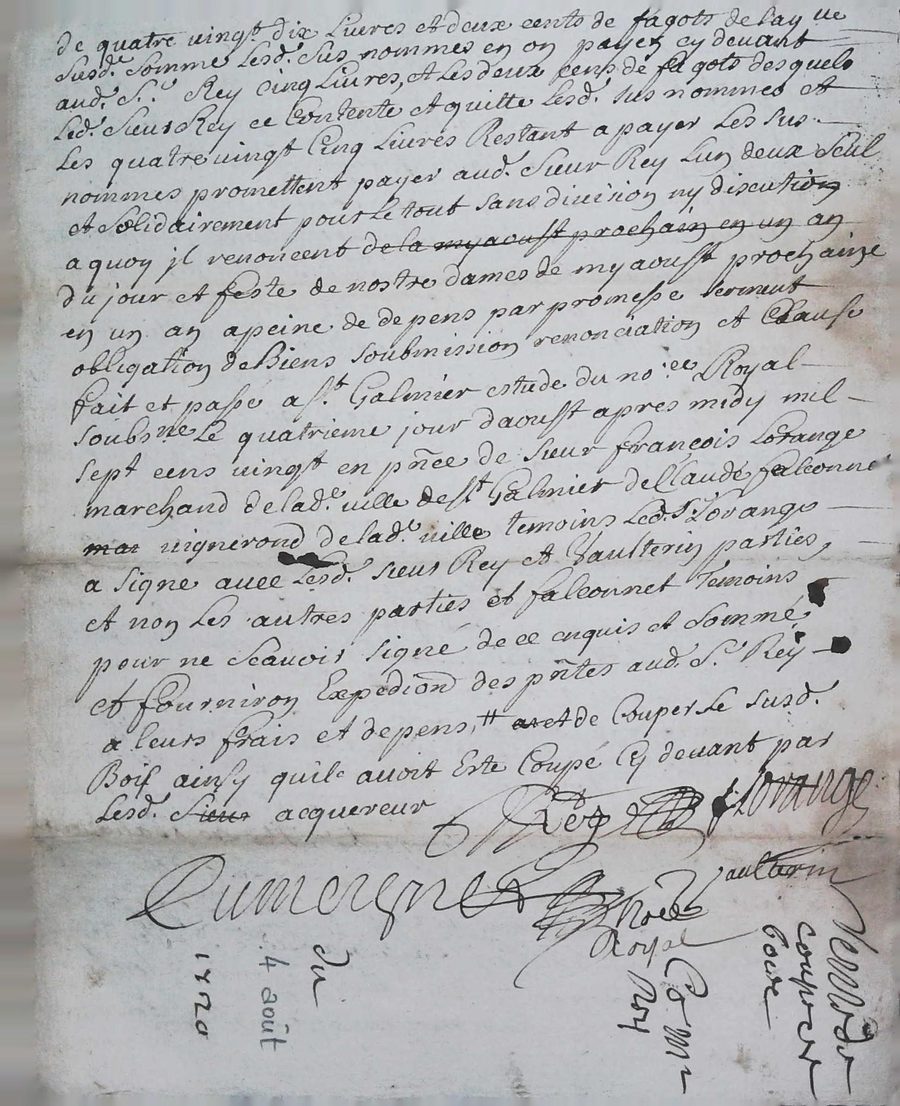 de quatre vingt dix Livres et deux cents de fagots de laq ue
susd.e Somme Lesd. sus nommes en on payez cy devant
aud. S.r Rey Cinq Livres, et Les deux cens de fagots des quels
Led. Sieur Rey ce Contente et quitte Lesd. sus nommes et
Les quatre vingt Cinq Livres Restant a payer Les sus
nommes promettent payer aud. Sieur Rey Lun deux Seul
et Solidairement pour Le tout sans division ny discution
a quoy jl renoncent de la my aoust prochain en un an
du jour et feste de nostre dames de my aoust prochaine
en un an a peine de depens par promesse serment
obligation de Biens soubmission renonciation et Clause
fait et passé a S.t Galmier estude du no.ee Royal
soubsne Le quatrieme jour daoust apres midy mil
sept cens vingt en pñce de Sieur françois Lorange
marchand de lad.e ville de St Galmier de Claude falconné
mar vigneron de lad.e ville temoins Led. Sr Lorange
a signe avec Lesd. sieur Rey et Vaulterin parties
et non Les autres parties et falconnet temoins
pour ne Scavoir signé de ce enquis et Sommé
et fourniron Expedion des pñtes aud. S.r Rey
a leurs frais et depens, et de Couper Le susd.
Bois ainsy quile avoit Este Coupé Cy devant par
Lesd. Sieur acquereur
Rey Lorange
Vaulterin
Cumergne
Noee
Royal
du
4 août
1720
Rey
couper